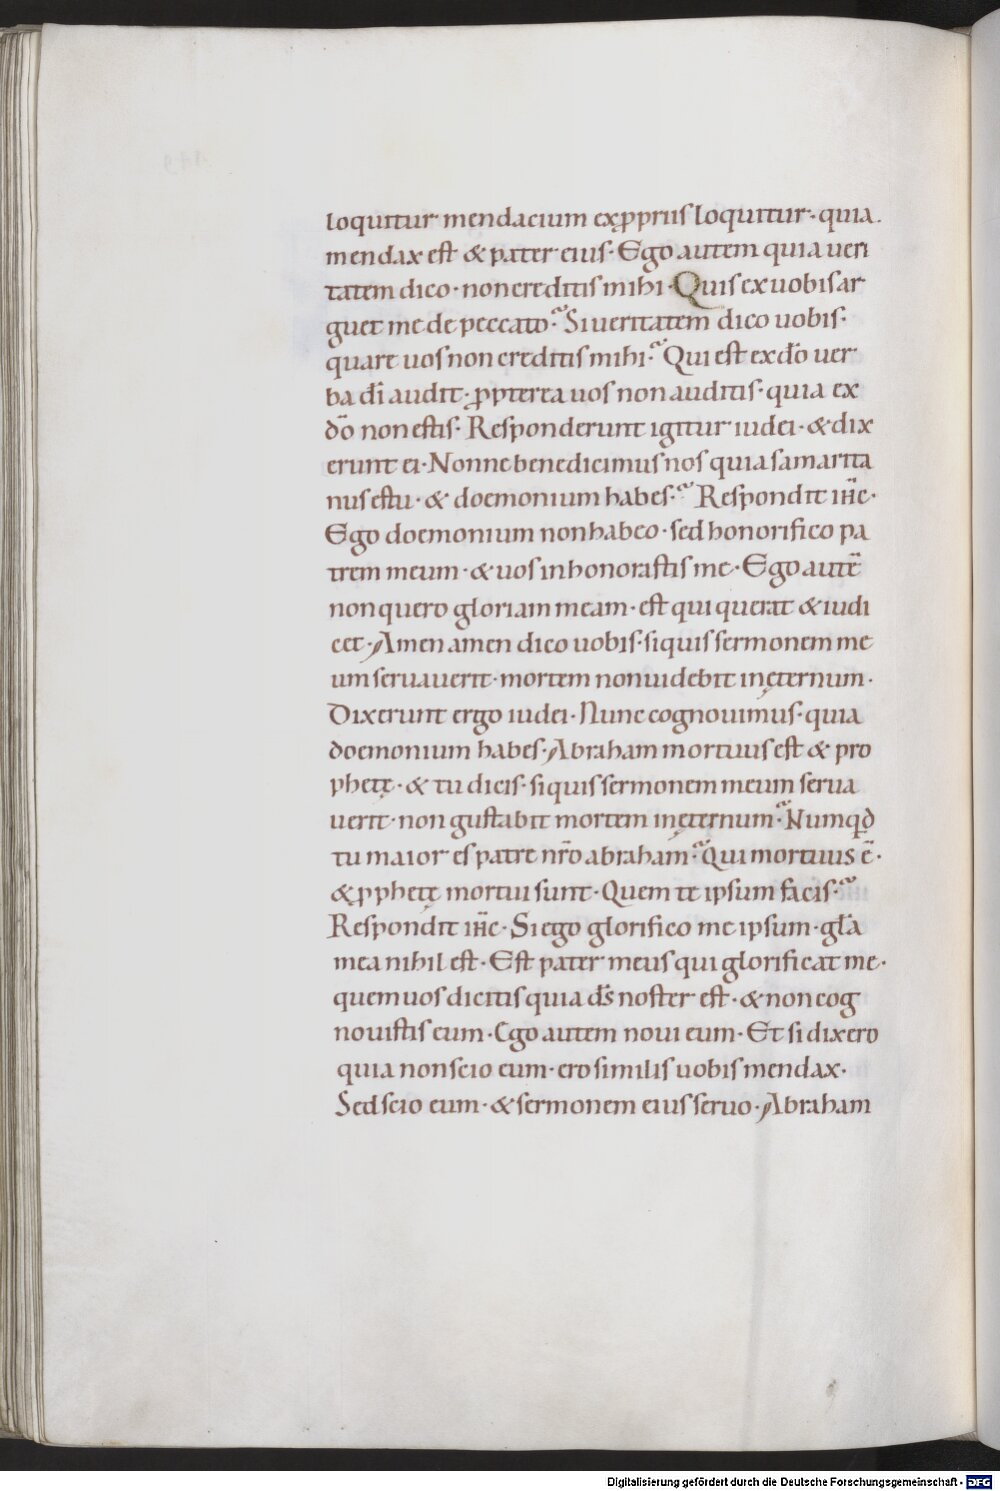 loquitur mendacium exp̱ropriis loquitur · quia
mendax est & pater eius · Ego autem quia ueri
tatem dico · non creditis mihi · Quis ex uobis ar
guet me de peccato · Si ueritatem dico uobis ·
quare uos non creditis mihi · Qui est ex do͞ uer
ba di͞ audit · ꝓpterea uos non auditis · quia ex
do͞ non estis · Responderunt igitur iudei · & dix
erunt ei · Nonne bene dicimus nos quia samarita
nus es tu · & doemonium habes · Respondit ih̅c ·
Ego doemonium non habeo · sed honorifico pa
trem meum · & uos inhonorastis me · Ego autē
non quero gloriam meam · est qui querat & iudi
cet · Amen amen dico uobis · siquis sermonem me
um seruauerit · mortem non uidebit in ęternum ·
Dixerunt ergo iudei · Nunc cognouimus · quia
doemonium habes · Abraham mortuus est & pro
phetę · & tu dicis · siquis sermonem meum serua
uerit · non gustabit mortem in ęternum · Numqđ
tu maior es patre nr̅o abraham · Qui mortuus ē ·
& ꝓphetę mortui sunt · Quem te ipsum facis ·
Respondit ih̅c · Si ego glorifico me ipsum · gl̅a
mea nihil est · Est pater meus qui glorificat me ·
quem uos dicitis quia ds̅ noster est · & non cog
nouistis eum · Ego autem noui eum · Et si dixero
quia non scio eum · ero similis uobis mendax ·
Sed scio eum · & sermonem eius seruo · Abraham
Digitalisierung gefördert durch die Deutsche Forschungsgemeinschaft - DFG